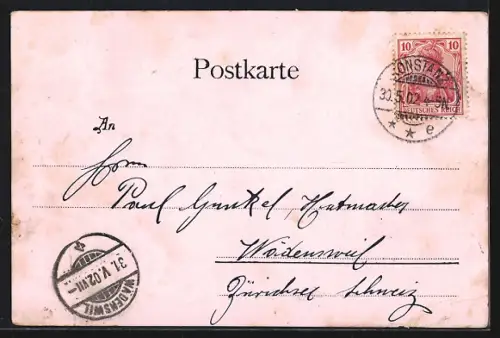 Postkarte
10 10
DEUTSCHES REICH
KONSTANZ
30.5.02.4-5N.
* * e
An
Herrn
Paul Gunkel, Hutmacher
Wädensweil
Zürichsee Schweiz
31. V. 02. VII-
WÄDENSWIL